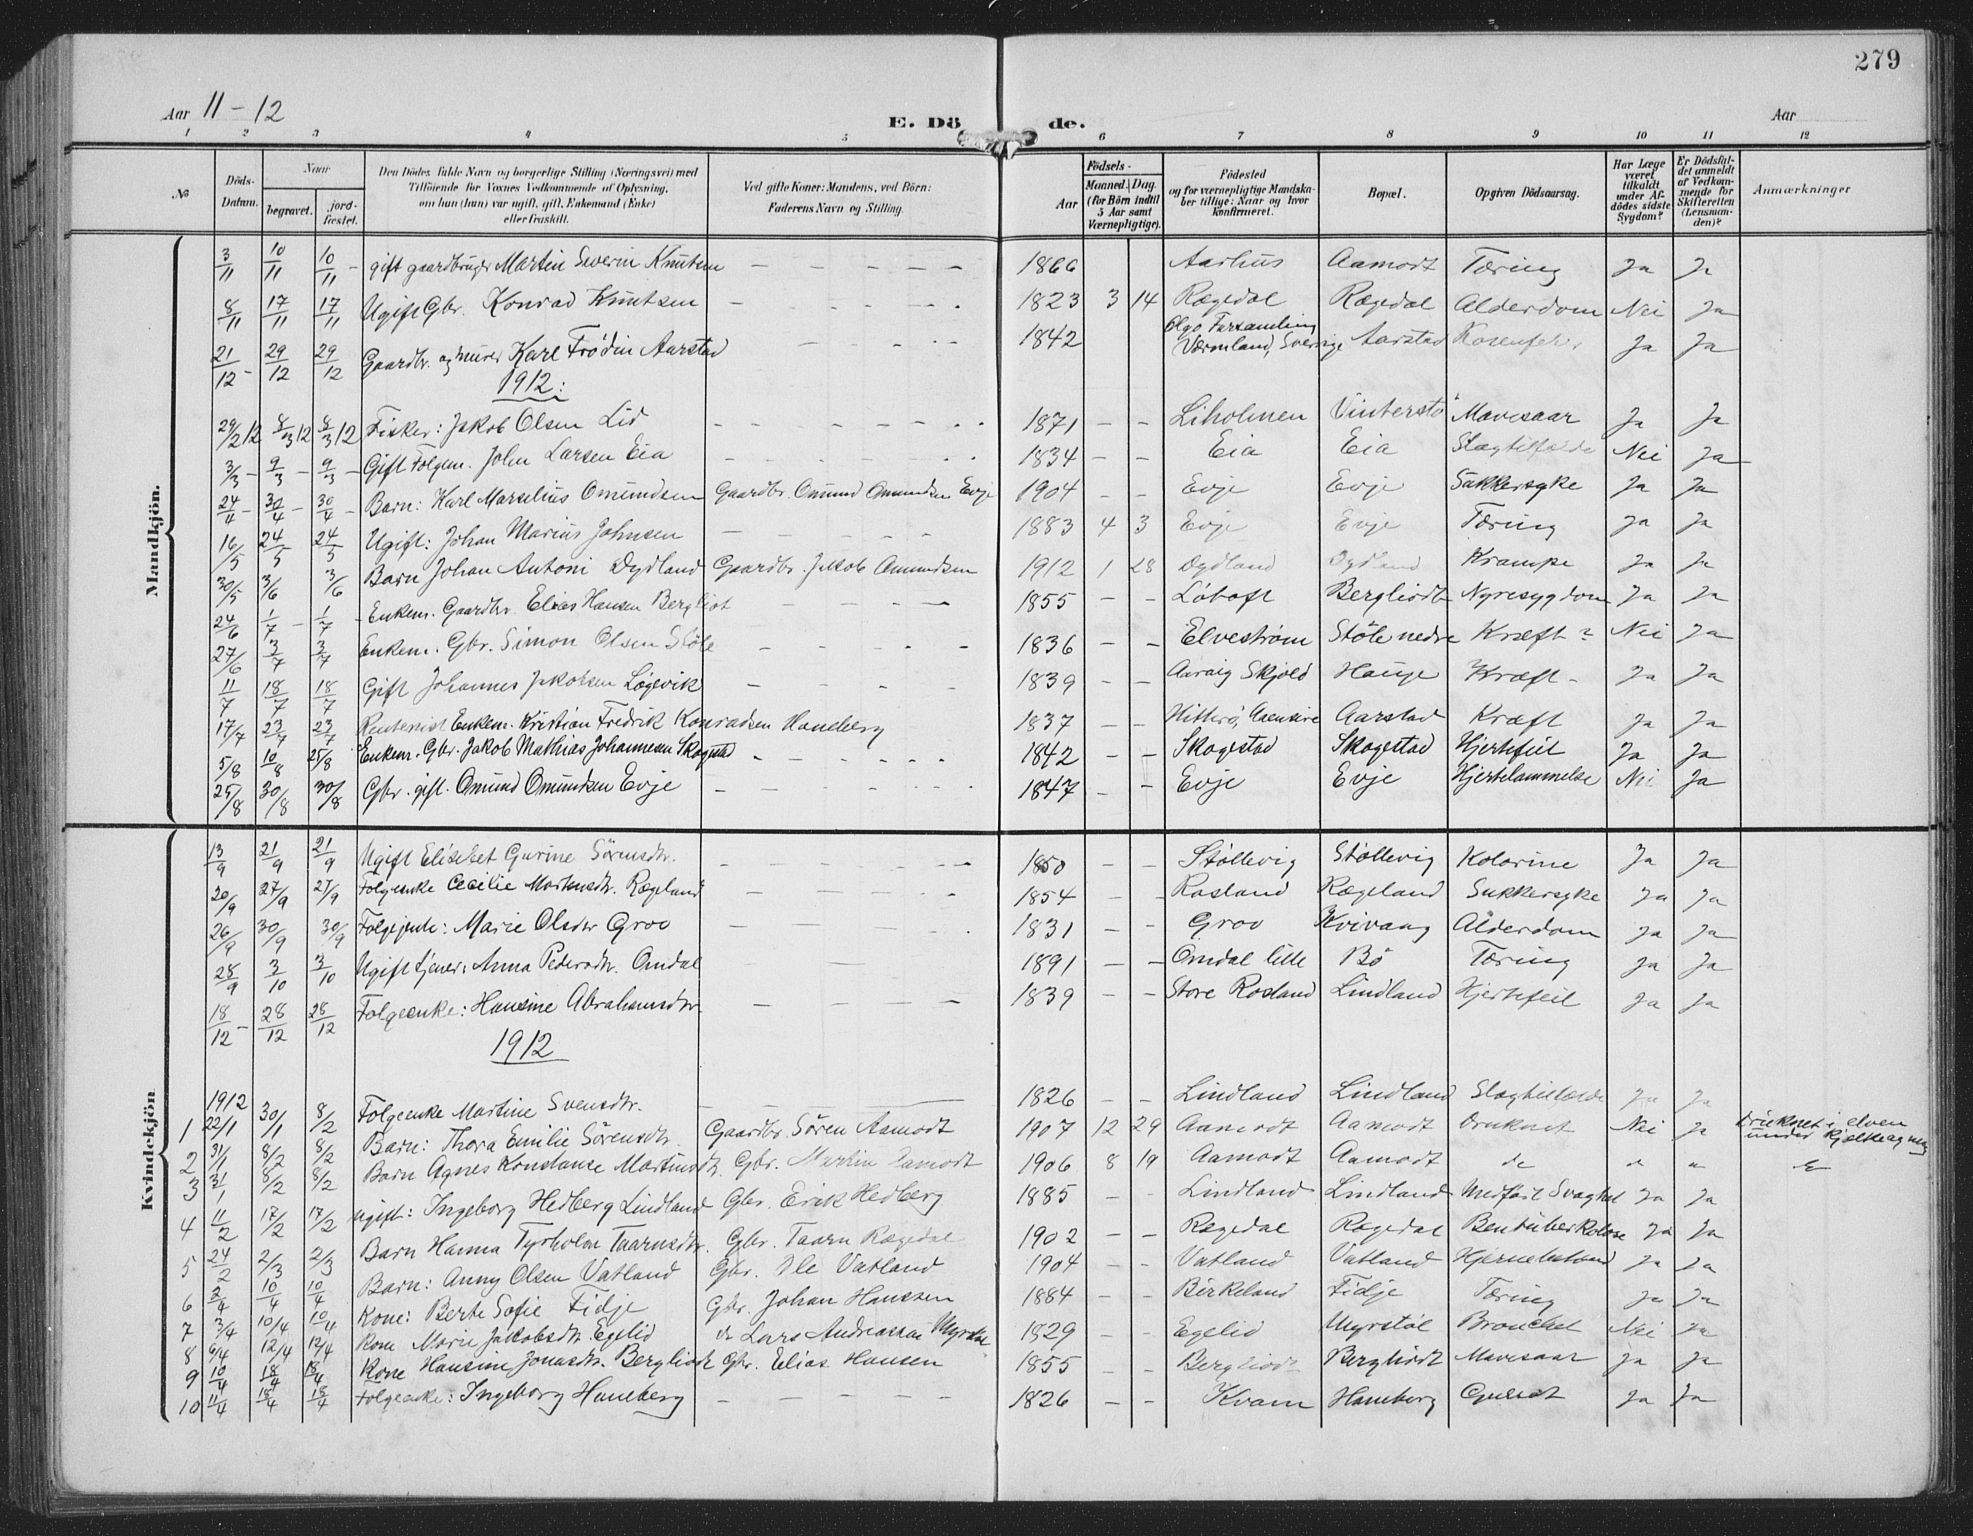 279
Aar 11 - 12 E. Dö de. Aar
1 2 3 4 5 6 7 8 9 10 11 12
No Döds-Datum. Naar begravet. jord-fæstet. Den Dödes fulde Navn og borgerlige Stilling (Næringsvei) med Tilföiende for Voxnes Vedkommende af Oplysning, om han (hun) var ugift, gift, Enkemand (Enke) eller fraskilt. Ved gifte Koner: Mandens, ved Börn: Faderens Navn og Stilling. Födsels- Aar Maaned. Dag. (for Börn indtil 5 Aar samt Værnepligtige). Födested og for værnepligtige Mandskaber tillige: Naar og hvor konfirmeret. Bopæl. Opgiven Dödsaarsag. Har Læge været tilkaldt under Afdödes sidste Sygdom? Er Dödsfaldet anmeldt af Vedkommende for Skifteretten (Lensmanden)? Anmærkninger
Mandkjön.
3/11 10/11 10/11 - gift gaardbruger Martin Severin Knutsen - - - - - 1866 Aarhus Aamodt Tæring Ja Ja
8/11 17/11 17/11 Ugift Gbr. Konrad Knutsen - - - - - 1823 3 14 Rægedal Rægedal Alderdom Nei Ja
21/12 - 29/12 29/12 Gaardbr. og murer Karl Frödin Aarstad - - - - 1842 Værmland, Sverige Aarstad Ja Ja
1912:
29/2 12 8/3 12 8/3 12 Fisker: Jakob Olsen Lid - - - - - - 1871 - - Liholmen Vinterstö Mavesaar Ja Ja
3/3 - 9/3 - 9/3 - Gift Folgem. John Larsen Eia - - - - - 1834 - - Eia Eia Slagtilfælde Nei Ja
24/4 - 30/4 - 30/4 - Barn: Karl Marselius Omundsen Gaardbr. Omund Omundsen Evje 1904 - - Evje Evje Sukkersyke Ja Ja
16/5 24/5 24/5 Ugift: Johan Marius Johnsen - - - - - 1883 4 3 Evje Evje Tæring Ja Ja
30/5 3/6 3/6 Barn Johan Antoni Dydland Gaardbr. Jakob Omundsen 1912 1 28 Dydland Dydland Krampe Ja Ja
24/6 1/7 - 1/7 - Enkem. Gaardbr. Elias Hansen Bergliot - - - - 1855 - - Lötoft Bergliodt Nyresygdom Ja Ja
27/6 3/7 3/7 Enkem. Gbr. Simon Olsen Stöle - - - - 1836 - - Elveström Stöle nedre Kræft? Nei Ja
11/7 18/7 18/7 Gift Johannes Jakobsen Løgevik - - - - 1839 - - Skjold Hauge Kræft - Ja Ja
17/7 23/7 23/7 Rentenist Enkem. Kristian Fredrik Konradsen Haneberg 1837 - - Hitterö, Aarstad Kræft Ja Ja
5/8 10/8 25/8 Enkem. Gbr. Jakob Mathias Johannesen Skogestad - - - - - - 1842 - - Skogestad Skogestad Hjertefeil Ja Ja
25/8 30/8 30/8 Gbr. gift. Omund Omundsen Evje - - - - - - 1847 - - Evje Evje Hjertelammelse Nei Ja
Kvindekjön
13/9 21/9 21/9 Ugift Elisebet Gurine Sörensdtr. - - - - - 1850 - - Stöllevig Stöllevig Kolorine Ja Ja
20/9 27/9 27/9 Folgeenke Cecilie Mortensdtr. Rægeland - - - - - 1854 - - Rosland Rægeland Sukkersyke Ja Ja
26/9 30/9 30/9 Folgejente: Marie Olsdtr Grov - - - - - 1831 - - Grov Kvivang Alderdom Ja Ja
28/9 3/10 3/10 Ugift tjener: Anna Pedersdtr. Omdal - - - - 1891 - - Omdal lille Bö Tæring Ja Ja
18/12 - 28/12 28/12 Folgeenke: Hansine Abrahamsdtr. - - - - - 1839 - - Store Rosland Lindland Hjertefeil Ja Ja
1912
1912
1 22/1 30/1 8/2 Folgeenke Martine Svensdtr. - - 1826 - - Lindland Lindland Slagtilfælde Ja Ja
2 31/1 8/2 8/2 Barn: Thora Emilie Sörensdtr. Gaardbr. Sören Aamodt 1907 12 29 Aamodt Aamodt Druknet Nei Ja Druknet i elven under kjelkeagning
3 31/1 8/2 8/2 Barn Agnes Konstanse Martinsdtr. Gbr. Martin Aamodt 1906 8 19 Aamodt Aamodt do " "
4 11/2 17/2 17/2 Ugift: Ingeborg Hedberg Lindland Gbr. Erik Hedberg 1885 - - Lindland Lindland Medfödt Svaghet Ja Ja
5 24/2 2/3 2/3 Barn Hanna Tyrholm Taarnsdtr. Gbr. Taarn Rægedal 1902 - - Rægedal Rægedal Bentuberkolose Ja Ja
6 2/4 10/4 10/4 Barn: Anny Olsen Vatland Gbr. Ole Vatland 1904 Vatland Vatland Ja Ja
7 3/4 10/4 10/4 Kone: Berte Sofie Fidje Gbr. Johan Hanssen 1884 - - Birkeland Fidje Tæring Ja Ja
8 6/4 12/4 12/4 Kone Marie Jakobsdtr. Egelid do Lars Andreassen Myrstöl 1829 - - Egelid Myrstöl Bronchit Nei Ja
9 10/4 18/4 18/4 Kone Hansine Jonasdtr. Bergliot Gbr. Elias Hansen 1855 - - Bergliodt Bergliodt Mavesaar Ja Ja
10 11/4 18/4 18/4 Folgeenke: Ingeborg Haneberg - - - - - 1826 - - Kvam Haneberg Gulsot Ja Ja